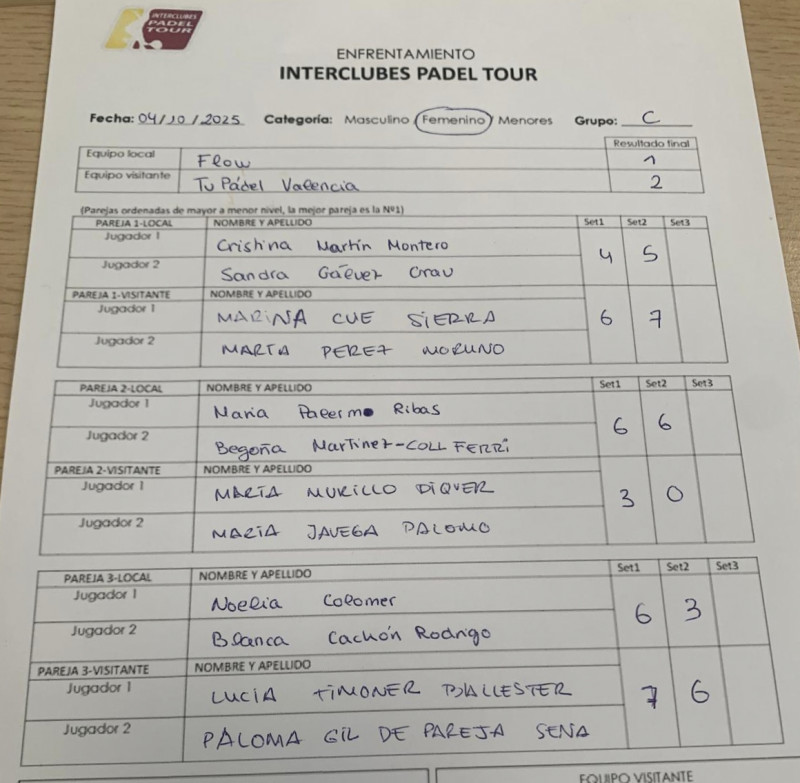 INTERCLUBES
PADEL
TOUR
ENFRENTAMIENTO
INTERCLUBES PADEL TOUR
Fecha: 04/10/2025 Categoría: Masculino Femenino Menores Grupo: C
Resultado final
Equipo local Flow 1
Equipo visitante Tu Pádel Valencia 2
(Parejas ordenadas de mayor a menor nivel, la mejor pareja es la Nº1)
PAREJA 1-LOCAL NOMBRE Y APELLIDO Set1 Set2 Set3
Jugador 1 Cristina Martín Montero
4 5
Jugador 2 Sandra Gálvez Grau
PAREJA 1-VISITANTE NOMBRE Y APELLIDO
Jugador 1 MARINA CUE SIERRA
6 7
Jugador 2 MARTA PEREZ MORUNO
PAREJA 2-LOCAL NOMBRE Y APELLIDO Set1 Set2 Set3
Jugador 1 Maria Palermo Ribas
6 6
Jugador 2 Begoña Martinez-COLL FERRI
PAREJA 2-VISITANTE NOMBRE Y APELLIDO
Jugador 1 MARÍA MURILLO DIQUER
3 0
Jugador 2 MARÍA JAVEGA PALOMO
PAREJA 3-LOCAL NOMBRE Y APELLIDO Set1 Set2 Set3
Jugador 1 Noelia Colomer
6 3
Jugador 2 Blanca Cachón Rodrigo
PAREJA 3-VISITANTE NOMBRE Y APELLIDO
Jugador 1 LUCÍA TIMONER BALLESTER
7 6
Jugador 2 PALOMA GIL DE PAREJA SENA
EQUIPO VISITANTE